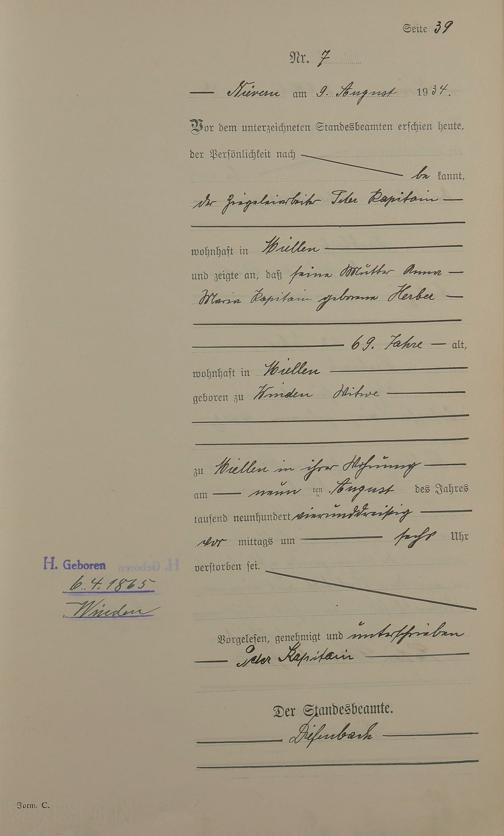 Seite 39
Nr. 7
Nievern am 9. August 1934.
Vor dem unterzeichneten Standesbeamten erschien heute,
der Persönlichkeit nach
be kannt,
der Ziegeleiarbeiter Peter Kapitain
wohnhaft in Miellen
und zeigte an, daß seine Mutter Anna
Maria Kapitain geborene Herber
69 Jahre alt,
wohnhaft in Miellen
geboren zu Winden Witwe
zu Miellen in ihrer Wohnung
am neun ten August des Jahres
tausend neunhundert vierunddreißig
vor mittags um sechs Uhr
verstorben sei.
H. Geboren
6.4.1865
Winden
Vorgelesen, genehmigt und unterschrieben
Peter Kapitain
Der Standesbeamte.
Diefenbach
Form. C.